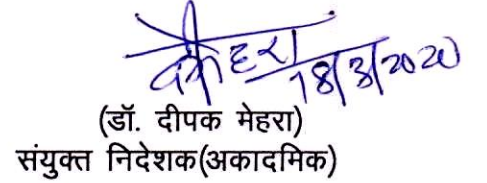 मेहरा
18/3/2020
(डॉ. दीपक मेहरा)
संयुक्त निदेशक(अकादमिक)